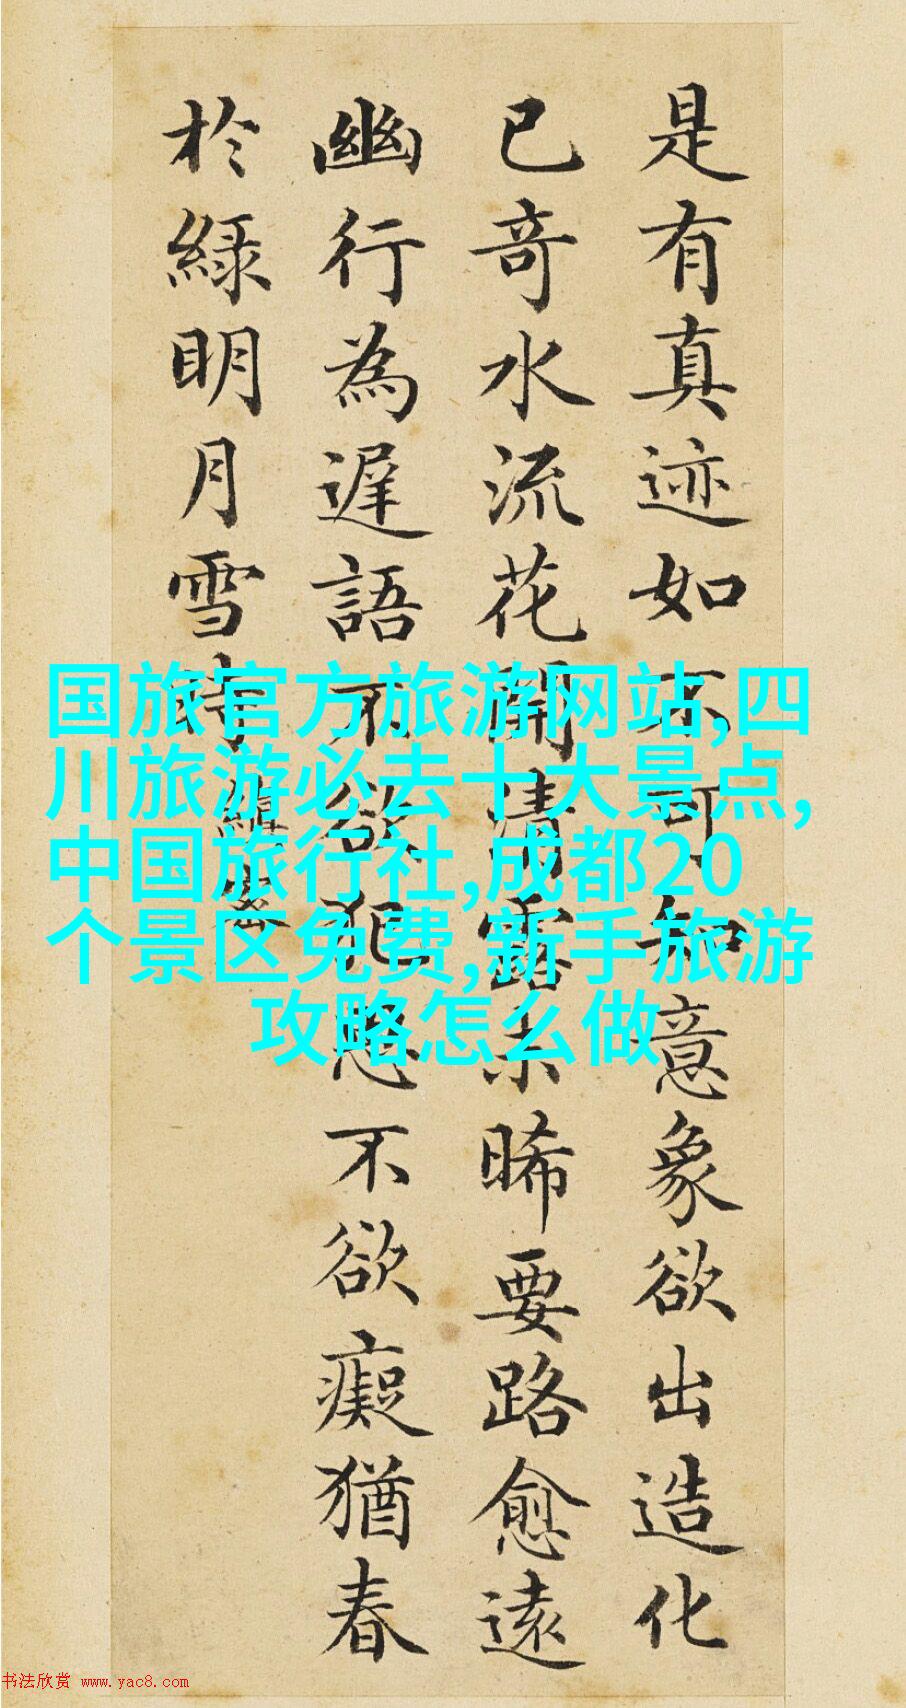 是有真迹如不可知意象欲出造化
已奇水流花開清露未晞要路愈遠
幽行為遲語不欲犯思不欲癡猶春
於綠明月雪時
縝密
国旅官方旅游网站,四
川旅游必去十大景点,
中国旅行社,成都20
个景区免费,新手旅游
攻略怎么做
书法欣赏 www.yac8.com